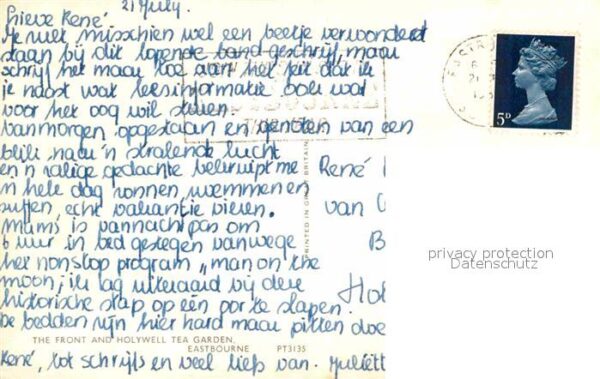 21 July.
Lieve René
Je zult misschien wel een beetje verwonderd
staan bij dit lopende band geschrijf, maar
schrijf het maar toe aan het feit dat ik
je naast wat leesinformatie ook wat
voor het oog wil sturen.
Vanmorgen opgestaan en genoten van een
blik naar 'n stralende lucht
en 'n zalige gedachte bekruipt me
'n hele dag zonnen, zwemmen en
suffen, echt vakantie vieren.
Mams is vannacht pas om
6 uur in bed gestegen vanwege
het nonstop program „man on the
moon; ik lag uiteraard bij deze
historische stap op één oor te slapen.
De bedden zijn hier hard maar pitten doe
René, tot schrijfs en veel liefs van. Juliëtt
René
van
B
Hol
5D
PRINTED IN GREAT BRITAIN
privacy protection
Datenschutz
THE FRONT AND HOLYWELL TEA GARDEN,
EASTBOURNE PT3135